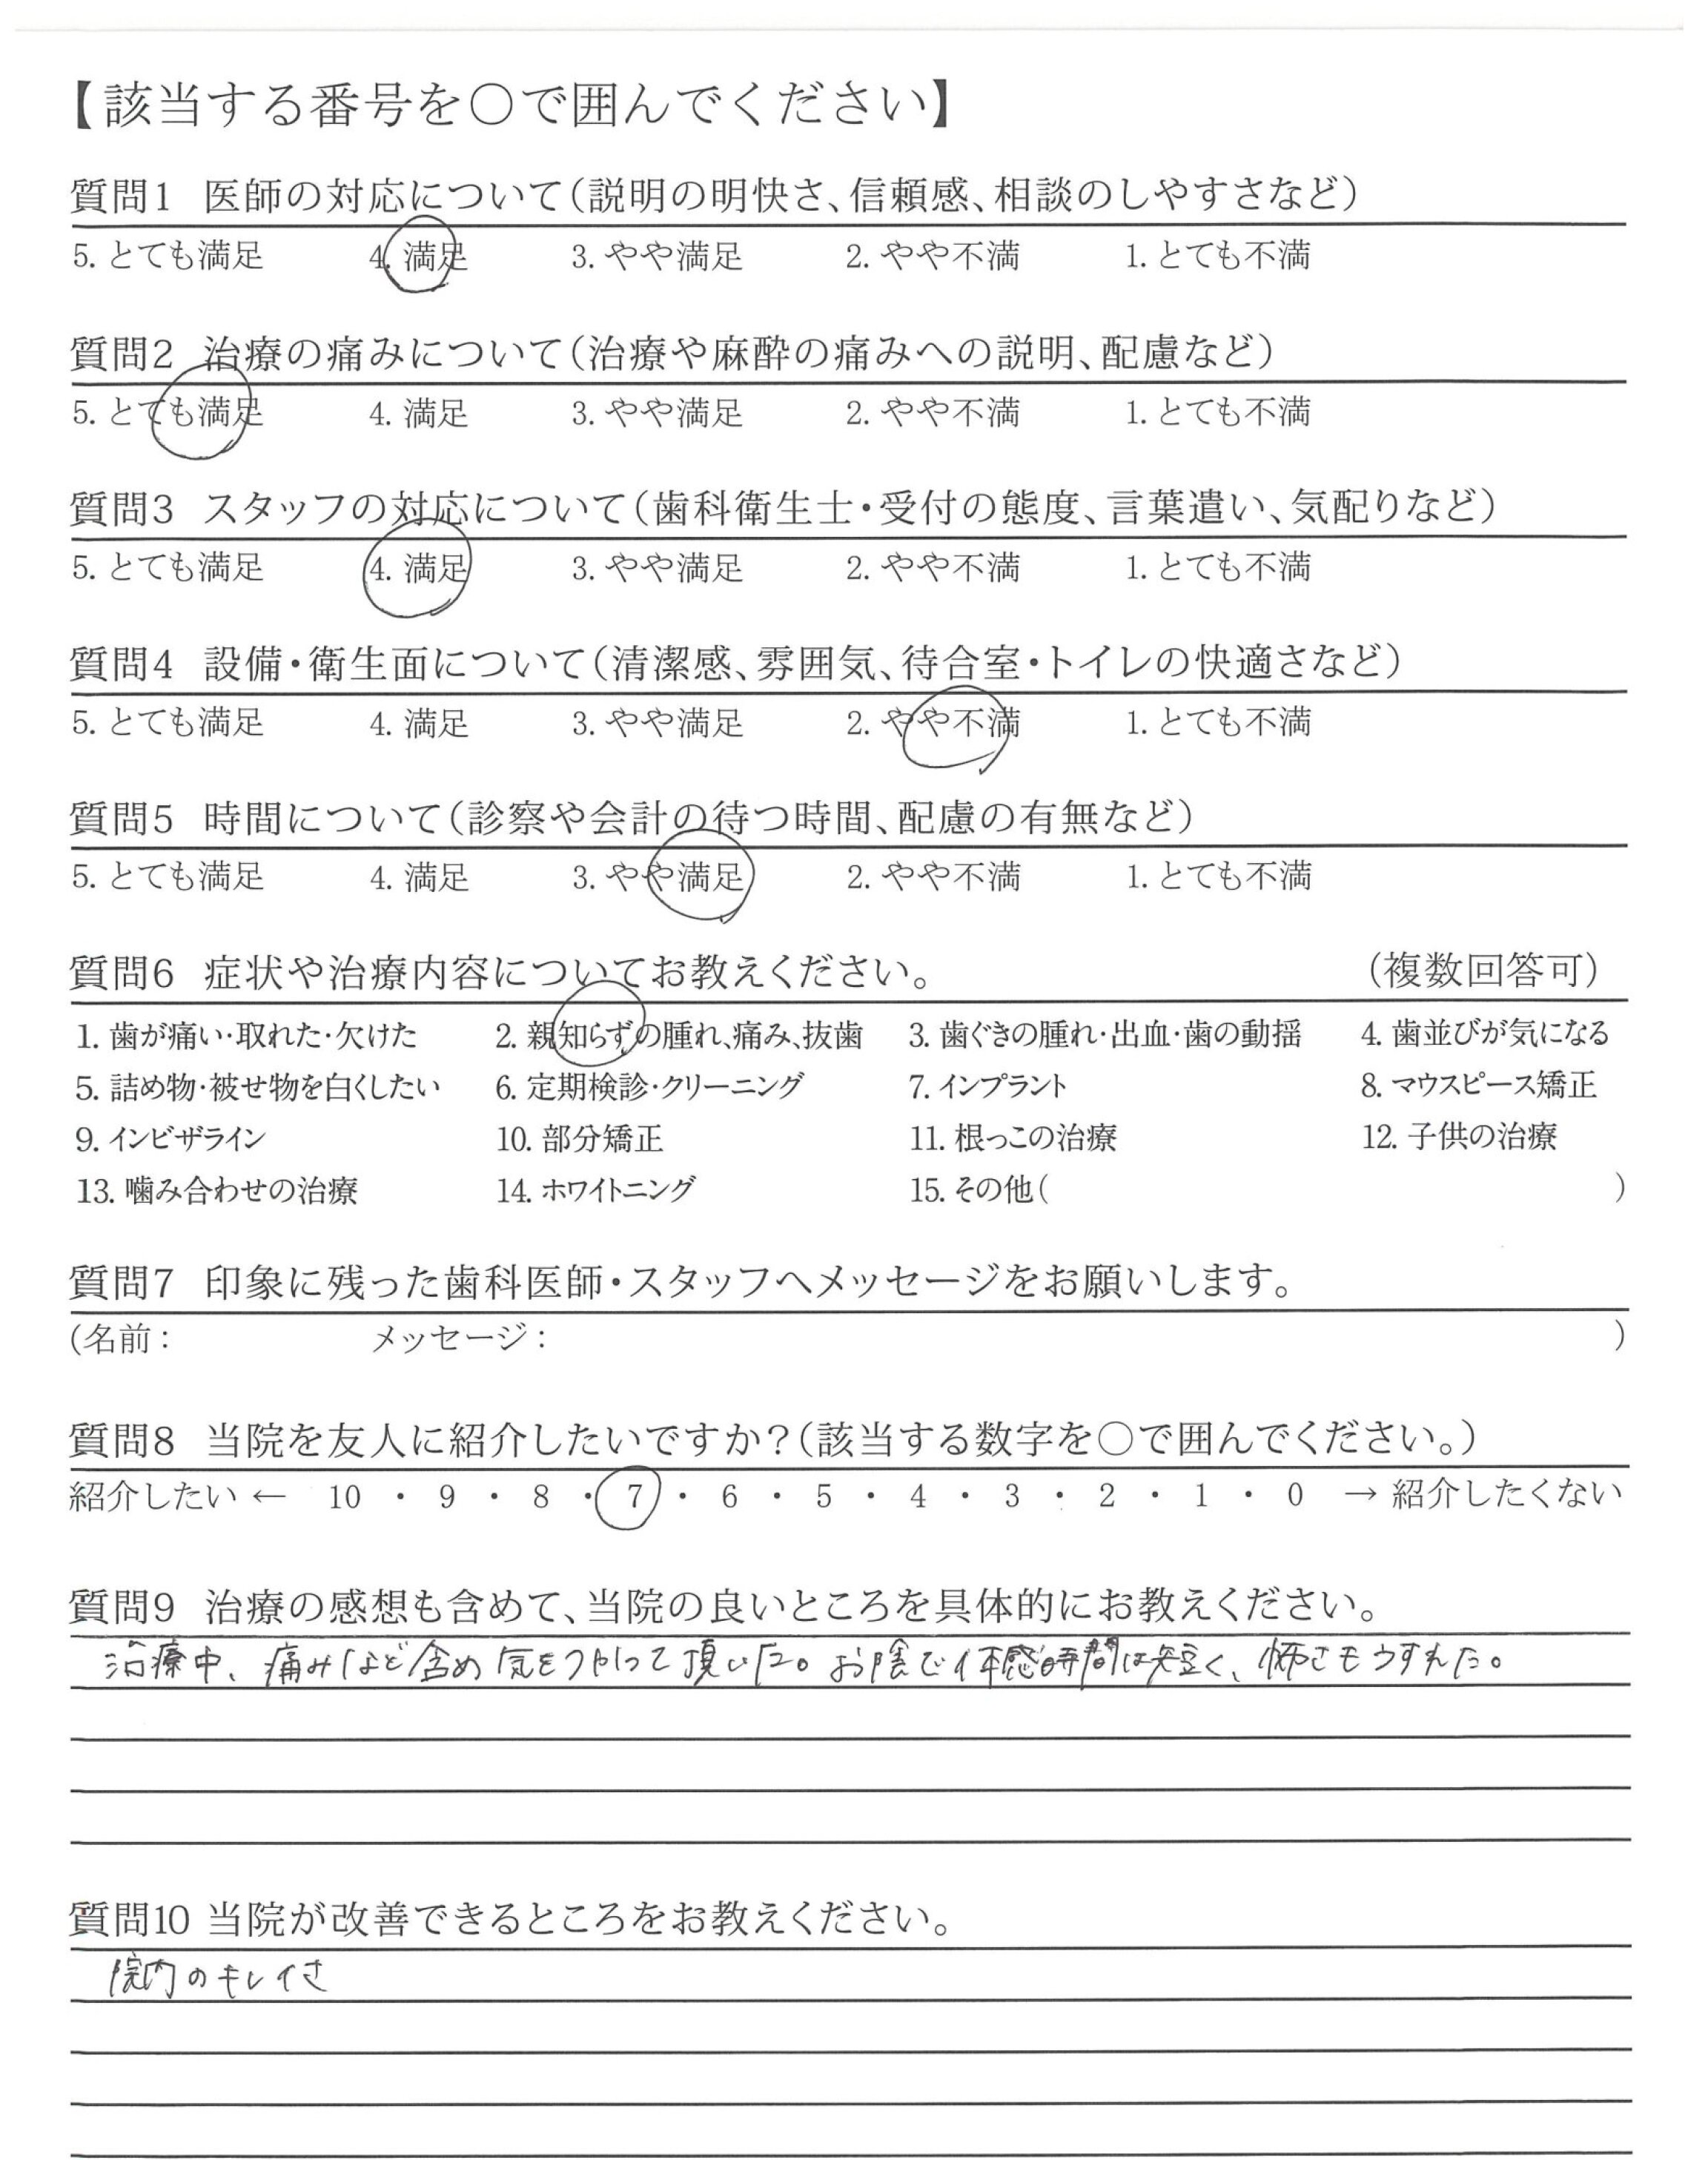 【該当する番号を○で囲んでください】
質問1 医師の対応について(説明の明快さ、信頼感、相談のしやすさなど)
5. とても満足 4. 満足 3. やや満足 2. やや不満 1. とても不満
質問2 治療の痛みについて(治療や麻酔の痛みへの説明、配慮など)
5. とても満足 4. 満足 3. やや満足 2. やや不満 1. とても不満
質問3 スタッフの対応について(歯科衛生士・受付の態度、言葉遣い、気配りなど)
5. とても満足 4. 満足 3. やや満足 2. やや不満 1. とても不満
質問4 設備・衛生面について(清潔感、雰囲気、待合室・トイレの快適さなど)
5. とても満足 4. 満足 3. やや満足 2. やや不満 1. とても不満
質問5 時間について(診察や会計の待つ時間、配慮の有無など)
5. とても満足 4. 満足 3. やや満足 2. やや不満 1. とても不満
質問6 症状や治療内容についてお教えください。 (複数回答可)
1. 歯が痛い・取れた・欠けた 2. 親知らずの腫れ、痛み、抜歯 3. 歯ぐきの腫れ・出血・歯の動揺 4. 歯並びが気になる
5. 詰め物・被せ物を白くしたい 6. 定期検診・クリーニング 7. インプラント 8. マウスピース矯正
9. インビザライン 10. 部分矯正 11. 根っこの治療 12. 子供の治療
13. 噛み合わせの治療 14. ホワイトニング 15. その他( )
質問7 印象に残った歯科医師・スタッフへメッセージをお願いします。
(名前: メッセージ: )
質問8 当院を友人に紹介したいですか?(該当する数字を○で囲んでください。)
紹介したい ← 10 ・ 9 ・ 8 ・ 7 ・ 6 ・ 5 ・ 4 ・ 3 ・ 2 ・ 1 ・ 0 → 紹介したくない
質問9 治療の感想も含めて、当院の良いところを具体的にお教えください。
治療中、痛みなど含め気をつかって頂いた。お陰で体感時間は短く、怖さもうすれた。
質問10 当院が改善できるところをお教えください。
院内のキレイさ